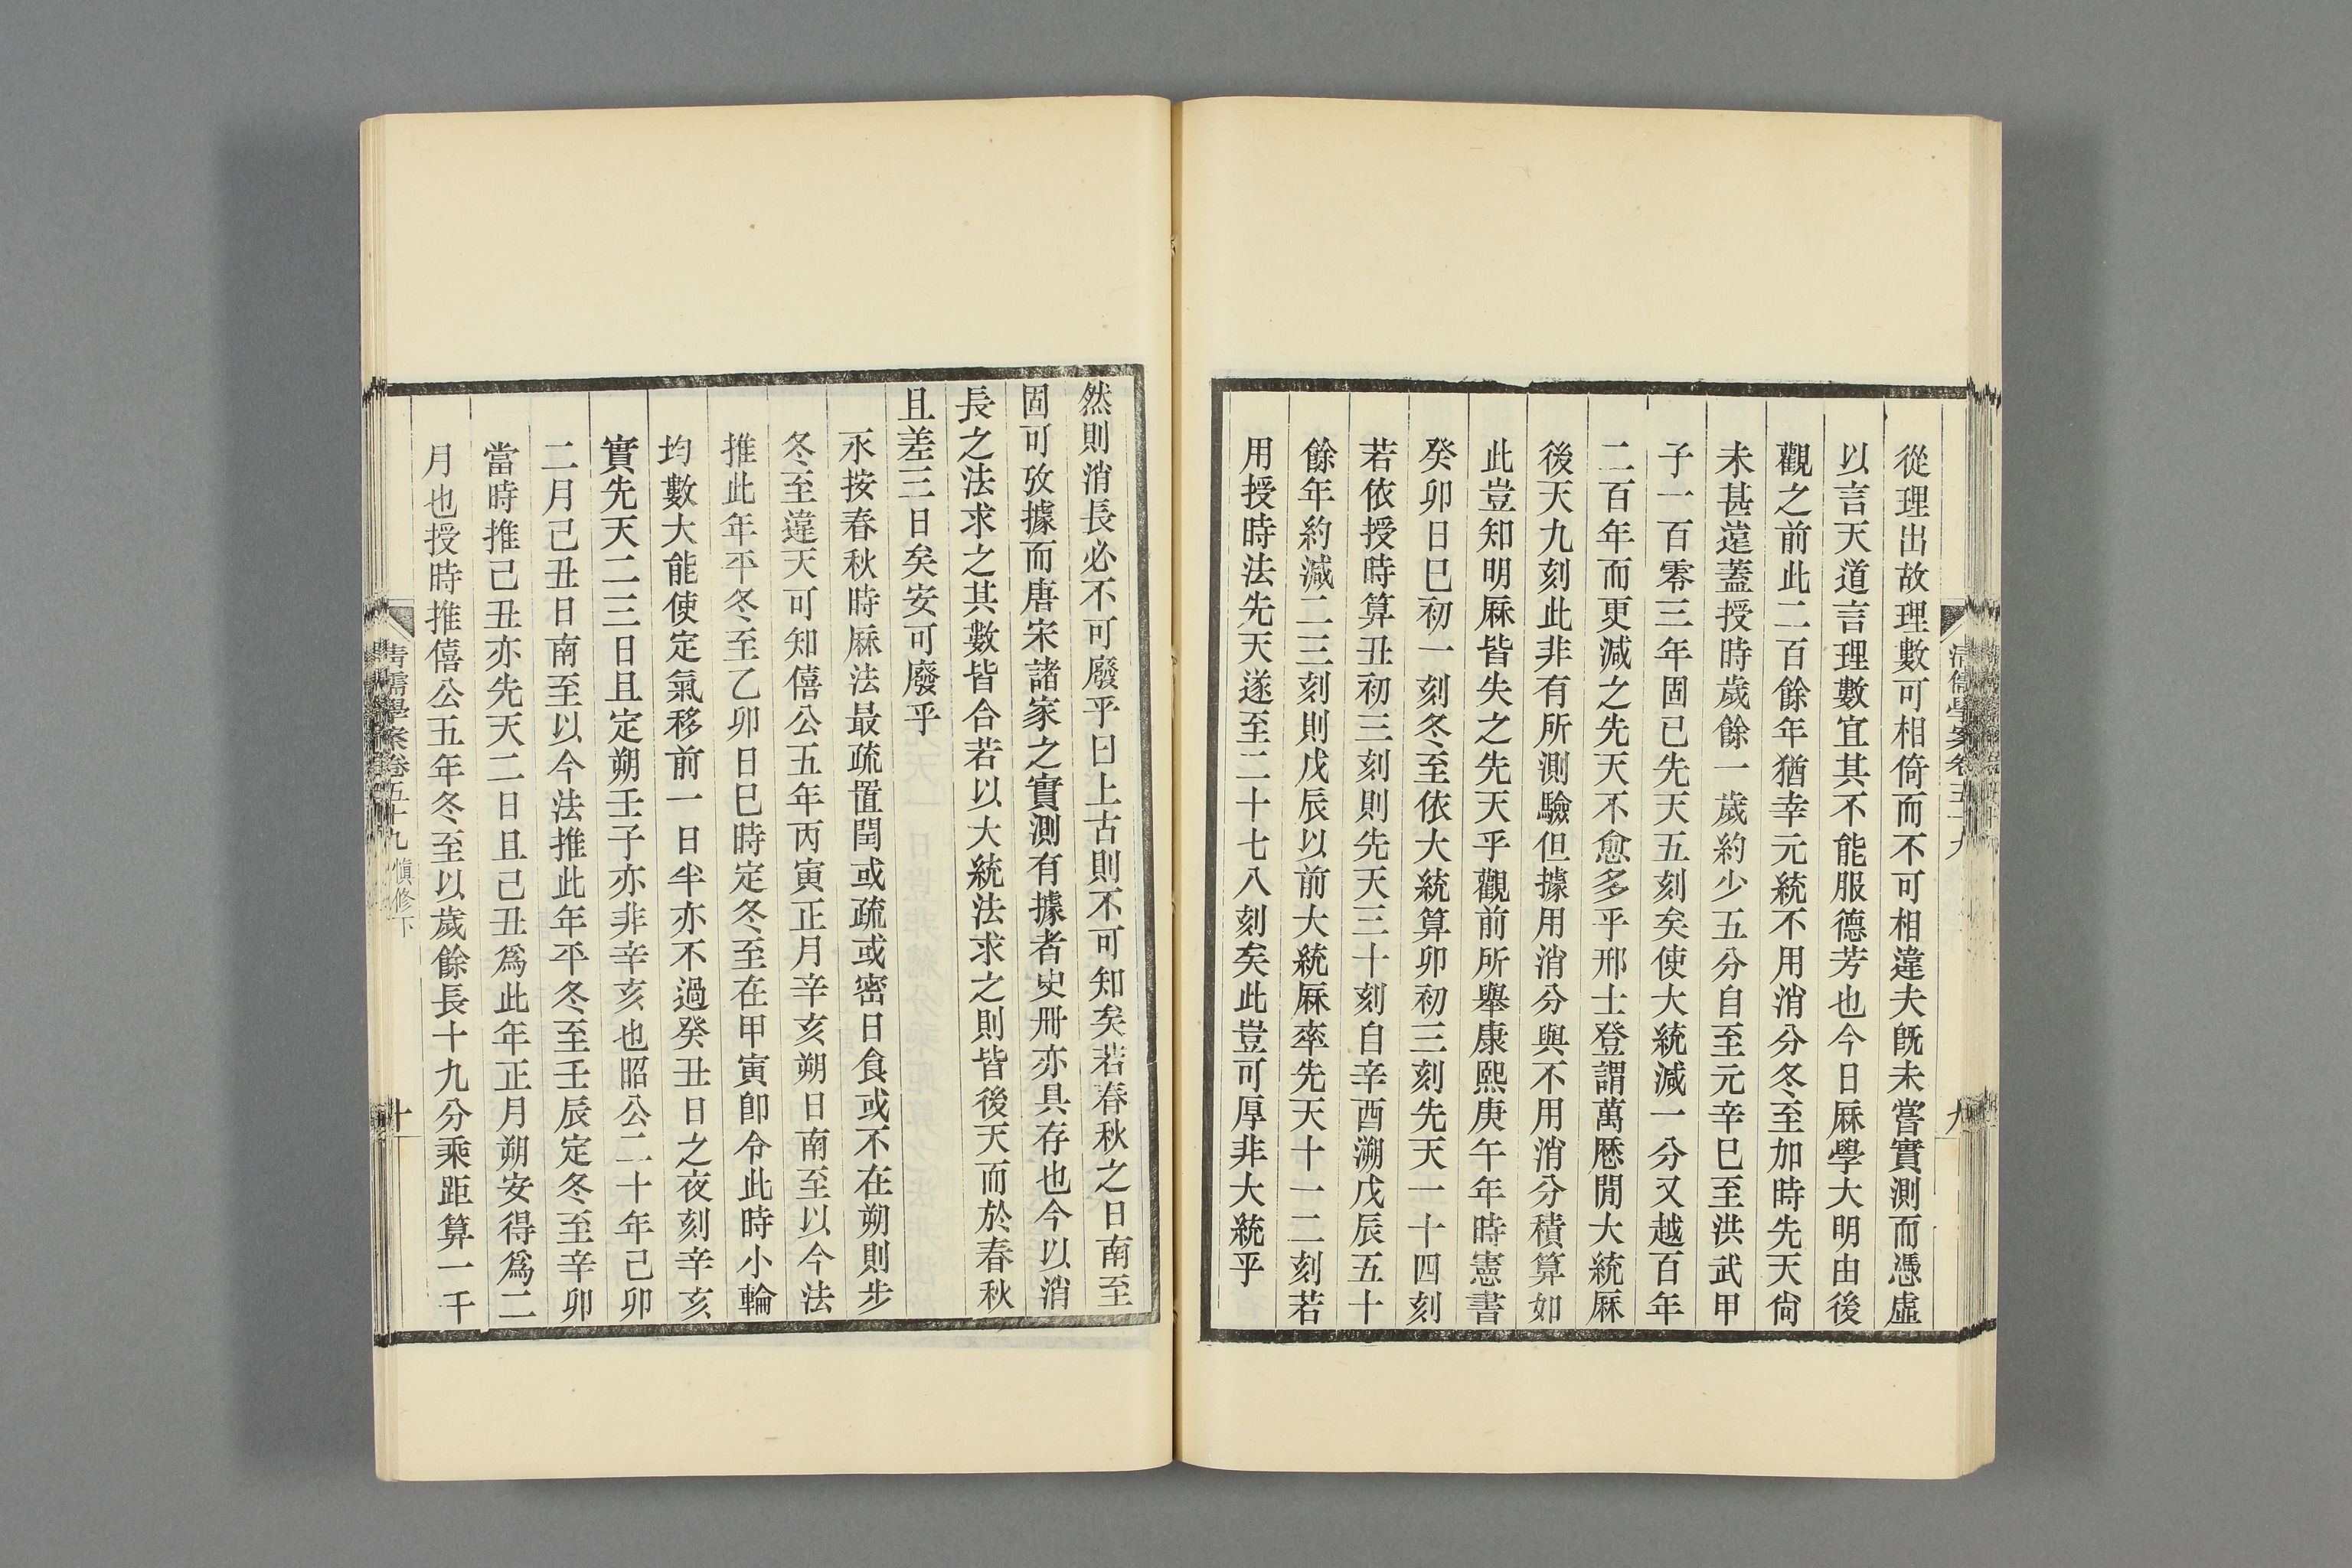 清儒學案卷五十九
九
從理出故理數可相倚而不可相違夫旣未嘗實測而憑虛
以言天道言理數宜其不能服德芳也今日厤學大明由後
觀之前此二百餘年猶幸元統不用消分冬至加時先天尙
未甚遠蓋授時歲餘一歲約少五分自至元辛巳至洪武甲
子一百零三年固已先天五刻矣使大統減一分又越百年
二百年而更減之先天不愈多乎邢士登謂萬厯閒大統厤
後天九刻此非有所測驗但據用消分與不用消分積算如
此豈知明厤皆失之先天乎觀前所舉康熙庚午年時憲書
癸卯日巳初一刻冬至依大統算卯初三刻先天一十四刻
若依授時算丑初三刻則先天三十刻自辛酉溯戊辰五十
餘年約減二三刻則戊辰以前大統厤率先天十一二刻若
用授時法先天遂至二十七八刻矣此豈可厚非大統乎
然則消長必不可廢乎曰上古則不可知矣若春秋之日南至
固可攷據而唐宋諸家之實測有據者史冊亦具存也今以消
長之法求之其數皆合若以大統法求之則皆後天而於春秋
且差三日矣安可廢乎
永按春秋時厤法最疏置閏或疏或密日食或不在朔則步
冬至違天可知僖公五年丙寅正月辛亥朔日南至以今法
推此年平冬至乙卯日巳時定冬至在甲寅卽令此時小輪
均數大能使定氣移前一日半亦不過癸丑日之夜刻辛亥
實先天二三日且定朔壬子亦非辛亥也昭公二十年己卯
二月己丑日南至以今法推此年平冬至壬辰定冬至辛卯
當時推己丑亦先天二日且己丑爲此年正月朔安得爲二
月也授時推僖公五年冬至以歲餘長十九分乘距算一千
清儒學案卷五十九 愼修下
十